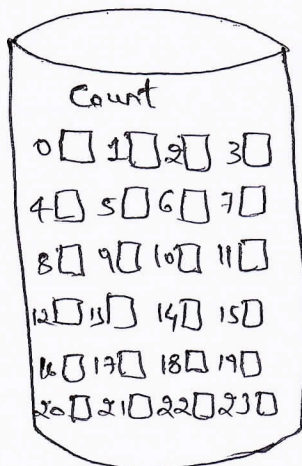 Count
0 1 2 3
4 5 6 7
8 9 10 11
12 13 14 15
16 17 18 19
20 21 22 23